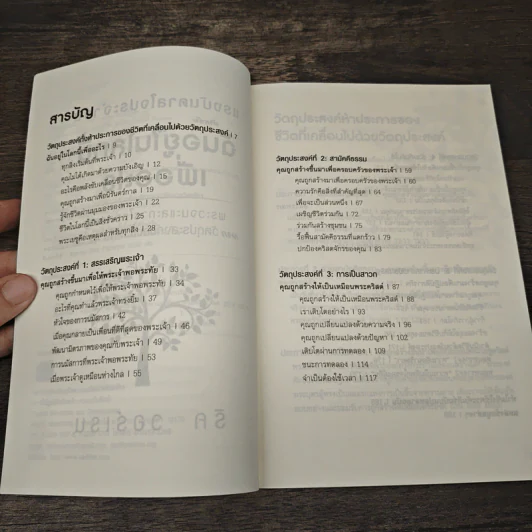 สารบัญ
วัตถุประสงค์ทั้งห้าประการของชีวิตที่เคลื่อนไปด้วยวัตถุประสงค์ | 7
ฉันอยู่ในโลกนี้เพื่ออะไร | 9
ทุกสิ่งเริ่มต้นที่พระเจ้า | 10
คุณไม่ได้เกิดมาด้วยความบังเอิญ | 12
อะไรคือพลังขับเคลื่อนชีวิตของคุณ | 15
คุณถูกสร้างมาเพื่อนิรันดร์กาล | 19
รู้จักชีวิตผ่านมุมมองของพระเจ้า | 22
ชีวิตในโลกนี้เป็นสิ่งชั่วคราว | 25
พระเจ้าคือเหตุผลสำหรับทุกสิ่ง | 28
วัตถุประสงค์ที่ 1: สรรเสริญพระเจ้า
คุณถูกสร้างขึ้นมาเพื่อให้พระเจ้าพอพระทัย | 33
คุณถูกกำหนดไว้เพื่อให้พระเจ้าพอพระทัย | 34
อะไรที่คุณทำแล้วพระเจ้าทรงยิ้ม | 37
หัวใจของการนมัสการ | 42
เมื่อคุณกลายเป็นเพื่อนที่ดีที่สุดของพระเจ้า | 46
พัฒนามิตรภาพของคุณกับพระเจ้า | 49
การนมัสการที่พระเจ้าพอพระทัย | 53
เมื่อพระเจ้าดูเหมือนห่างไกล | 55
วัตถุประสงค์ที่ 2: สามัคคีธรรม
คุณถูกสร้างขึ้นมาเพื่อครอบครัวของพระเจ้า | 59
คุณถูกสร้างมาเพื่อครอบครัวของพระเจ้า | 60
ความรักคือสิ่งที่สำคัญที่สุด | 64
เพื่อจะเป็นส่วนหนึ่ง | 67
เผชิญชีวิตร่วมกัน | 72
ร่วมกันสร้างชุมชน | 75
รื้อฟื้นสามัคคีธรรมที่แตกร้าว | 79
ปกป้องคริสตจักรของคุณ | 83
วัตถุประสงค์ที่ 3: การเป็นสาวก
คุณถูกสร้างให้เป็นเหมือนพระคริสต์ | 87
คุณถูกสร้างให้เป็นเหมือนพระคริสต์ | 88
เราเติบโตอย่างไร | 93
คุณถูกเปลี่ยนแปลงด้วยความจริง | 96
คุณถูกเปลี่ยนแปลงด้วยปัญหา | 102
เติบโตผ่านการทดลอง | 109
ชนะการทดลอง | 114
จำเป็นต้องใช้เวลา | 117